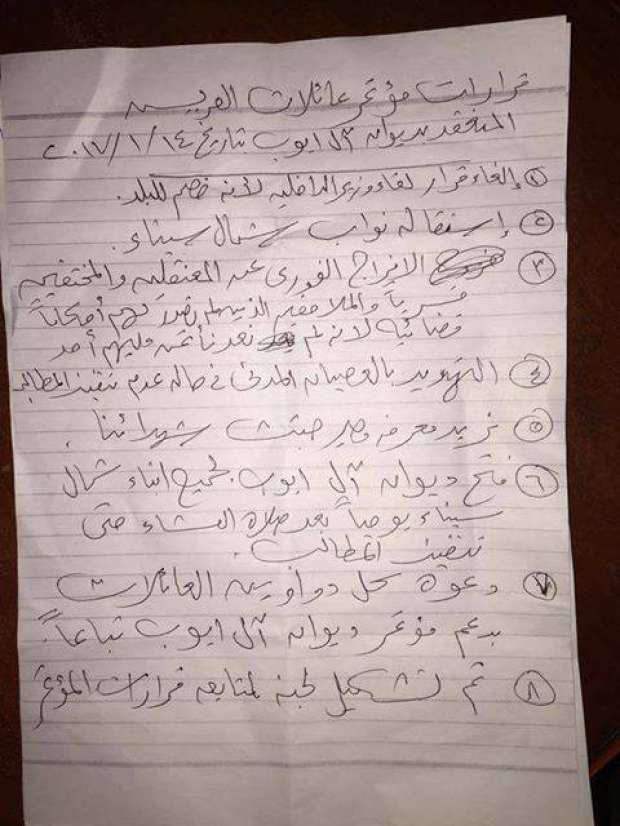 قرارات مؤتمر عائلات العريش
المنعقد بديوان آل ايوب بتاريخ ١٤ / ١ / ٢٠١٧
١ إلغاء قرار لقاء وزير الداخليه لأنه خصم للبلد.
٢ إستقاله نواب شمال سيناء.
٣ الافراج الفورى عن المعتقلين والمختفين
قسرياً والملاحقين الذين لم تصدر لهم أحكاماً
قضائيه لانه لم نعد نأتمن عليهم أحد
٤ التهديد بالعصيان المدنى فى حاله عدم تنفيذ المطالب
٥ نريد معرفه مصير جثث شهدائنا.
٦ فتح ديوان آل ايوب لجميع ابناء شمال
سيناء يومياً بعد صلاة العشاء حتى
تنفيذ المطالب.
٧ دعوة كل دواوين العائلات
بدعم مؤتمر ديوان آل ايوب تباعاً.
٨ تم تشكيل لجنه لمتابعه قرارات المؤتمر